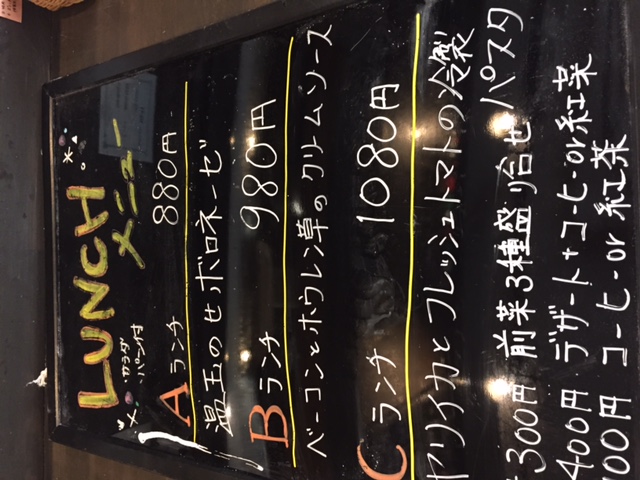 LUNCH
メニュー
サラダ
パン付
Aランチ 880円
温玉のせボロネーゼ
Bランチ 980円
ベーコンとホウレン草のクリームソース
Cランチ 1080円
ヤリイカとフレッシュトマトの冷製パスタ
300円 前菜3種盛り合せ
400円 デザート+コーヒーor紅茶
00円 コーヒーor紅茶